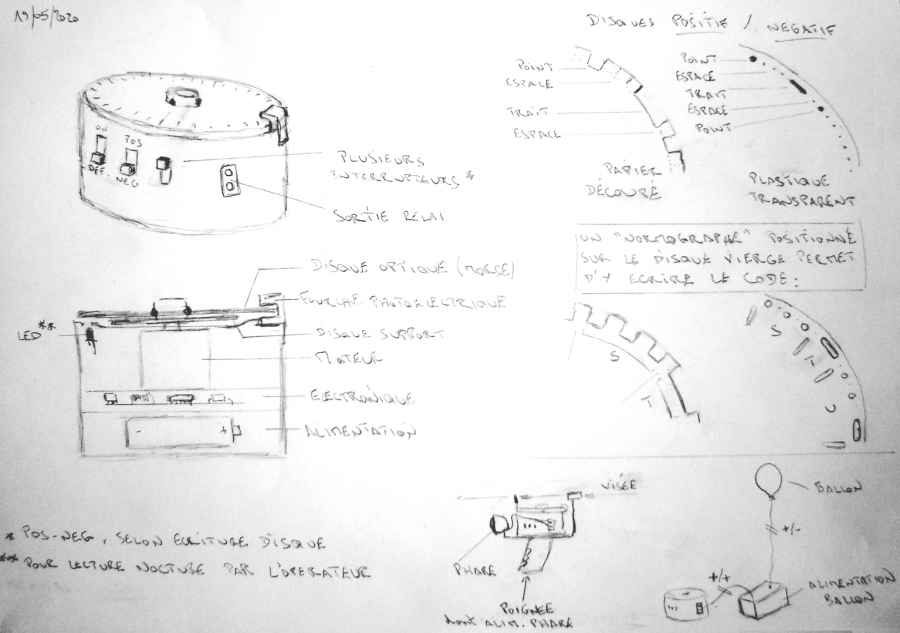 19/05/2020
DISQUES POSITIF / NEGATIF
POINT
ESPACE
TRAIT
ESPACE
PAPIER
DÉCOUPÉ
POINT
ESPACE
TRAIT
ESPACE
POINT
PLASTIQUE
TRANSPARENT
ON
OFF
POS
NEG
PLUSIEURS
INTERRUPTEURS *
SORTIE RELAI
UN "NORMOGRAPHE" POSITIONNÉ
SUR LE DISQUE VIERGE PERMET
D'Y ECRIRE LE CODE :
DISQUE OPTIQUE (MORSE)
FOURCHE PHOTOELECTRIQUE
LED **
DISQUE SUPPORT
MOTEUR
ELECTRONIQUE
ALIMENTATION
- +
S
T
S
T
U
VISÉE
PHARE
POIGNEE
dont ALIM. PHARE
BALLON
+/-
+/+
ALIMENTATION
BALLON
* POS-NEG, SELON ECRITURE DISQUE
** POUR LECTURE NOCTURE PAR L'OPERATEUR